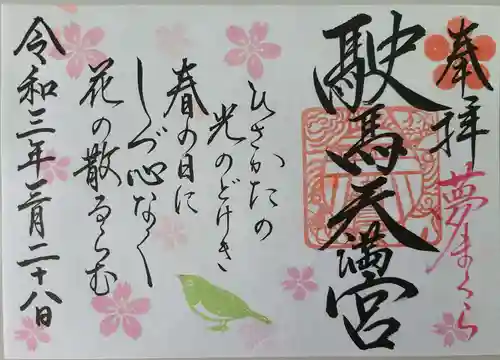 奉拝
夢まくら
駛馬天満宮
ひさかたの
光のどけき
春の日に
しづ心なく
花の散るらむ
令和三年三月二十八日